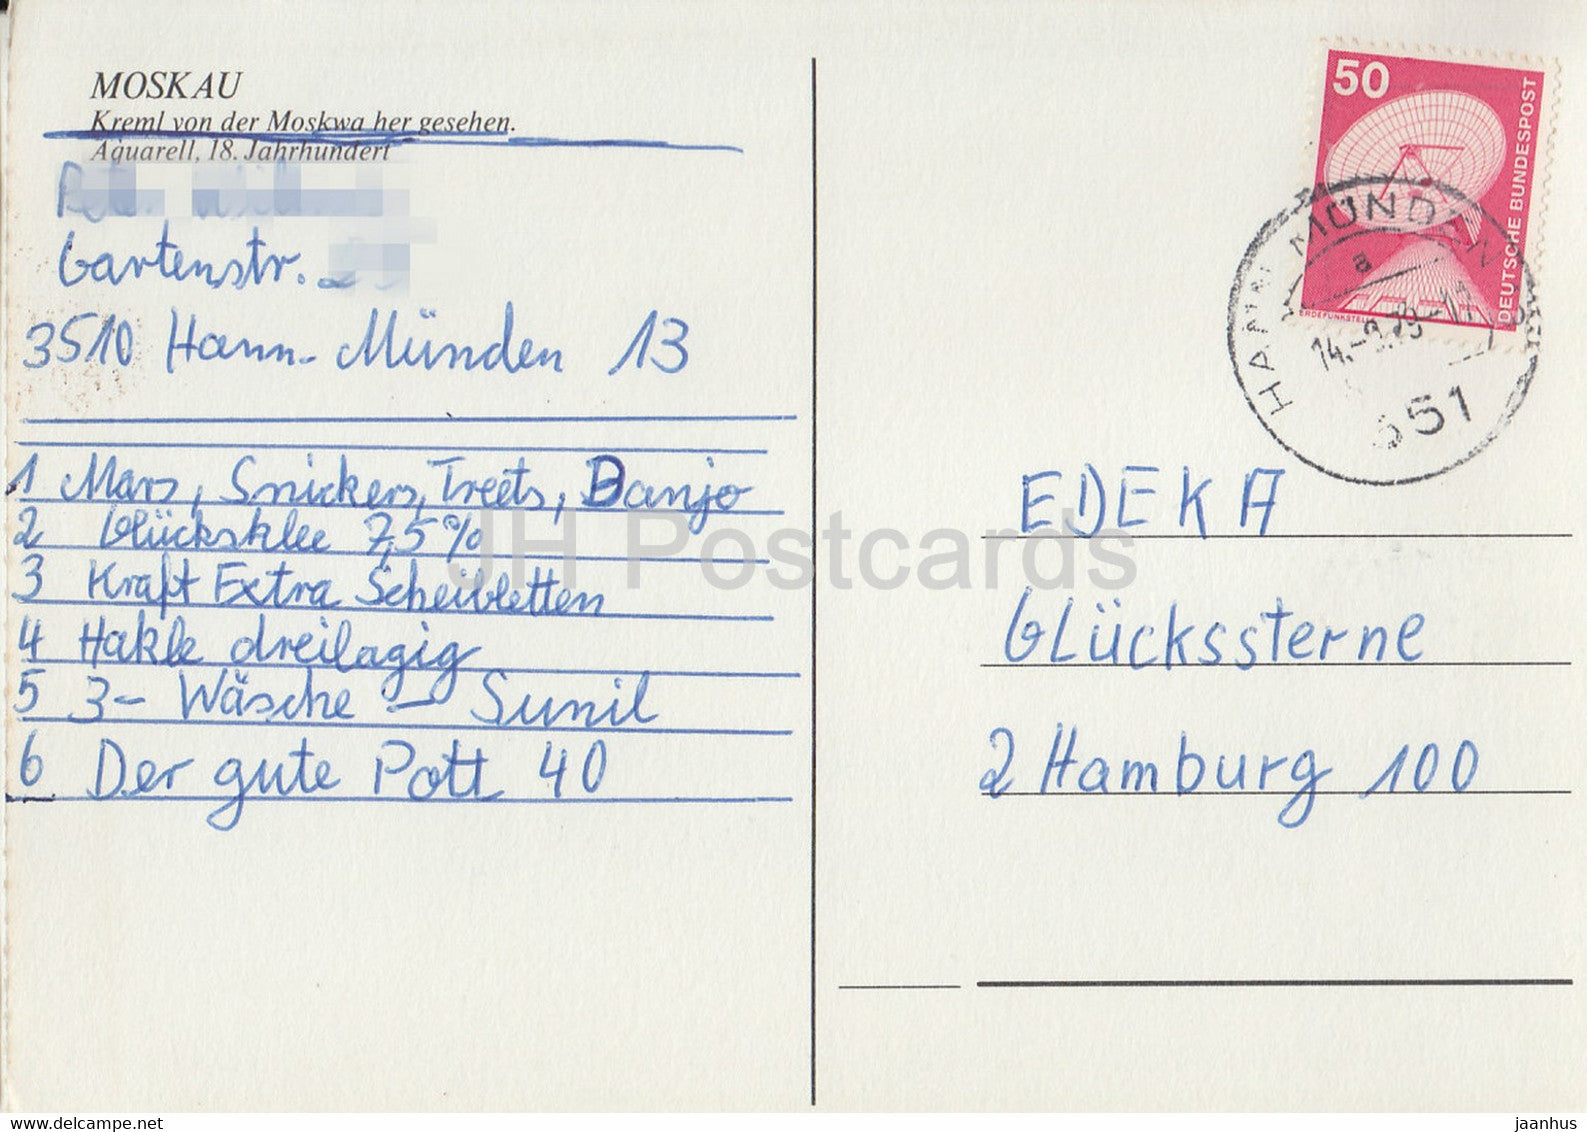 MOSKAU
Kreml von der Moskwa her gesehen.
Aquarell, 18. Jahrhundert
Gartenstr.
3510 Hann. Münden 13
1 Mars, Snickers, Treets, Banjo
2 Glücksklee 7,5%
3 Kraft Extra Scheibletten
4 Hakle dreilagig
5 3- Wäsche - Sunil
6 Der gute Pott 40
50
DEUTSCHE BUNDESPOST
ERDEFUNKSTELLE
HANN MÜNDEN
a
14.-9.79
351
EDEKA
Glückssterne
2 Hamburg 100
JH Postcards
www.delcampe.net
jaanhus